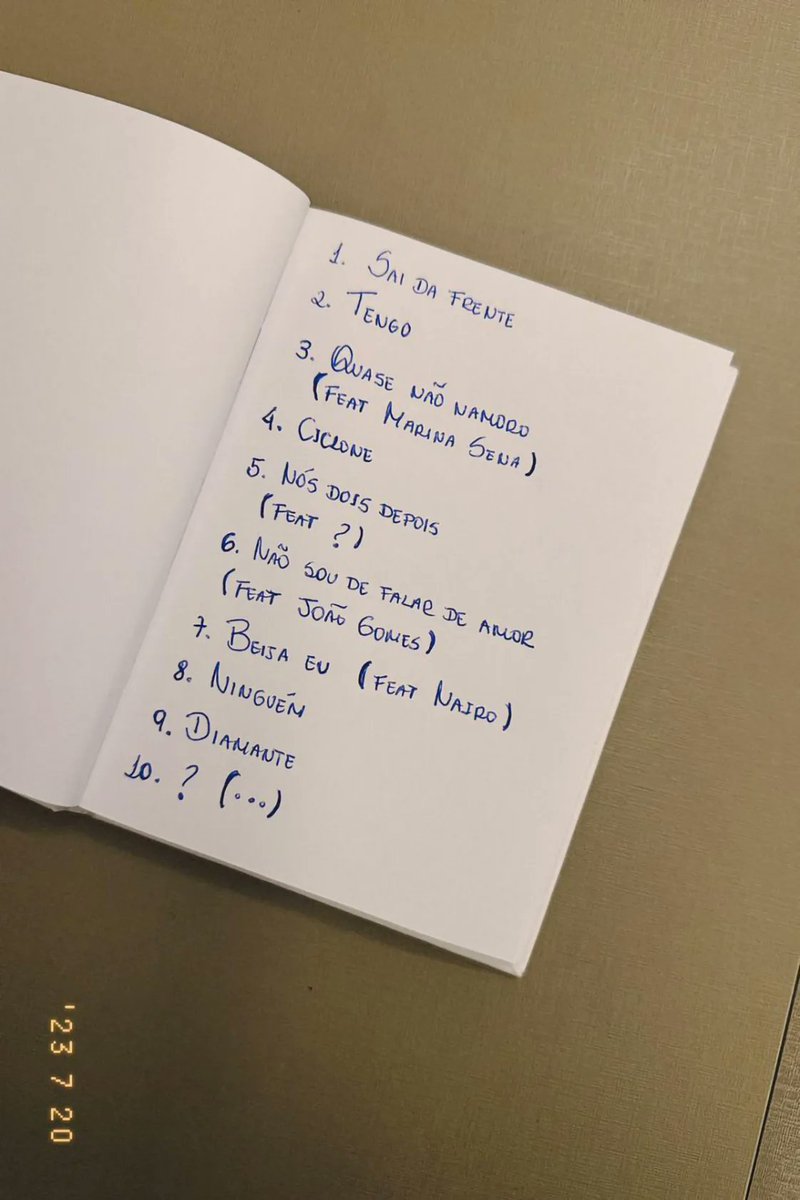 1. SAI DA FRENTE
2. TENGO
3. QUASE NÃO NAMORO
(FEAT MARINA SENA)
4. CICLONE
5. NÓS DOIS DEPOIS
(FEAT ?)
6. NÃO SOU DE FALAR DE AMOR
(FEAT JOÃO GOMES)
7. BEIJA EU (FEAT NAIRO)
8. NINGUÉM
9. DIAMANTE
10. ? (...)
'23 7 20